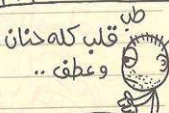 طب
قلب كله حنان
وعطف ..